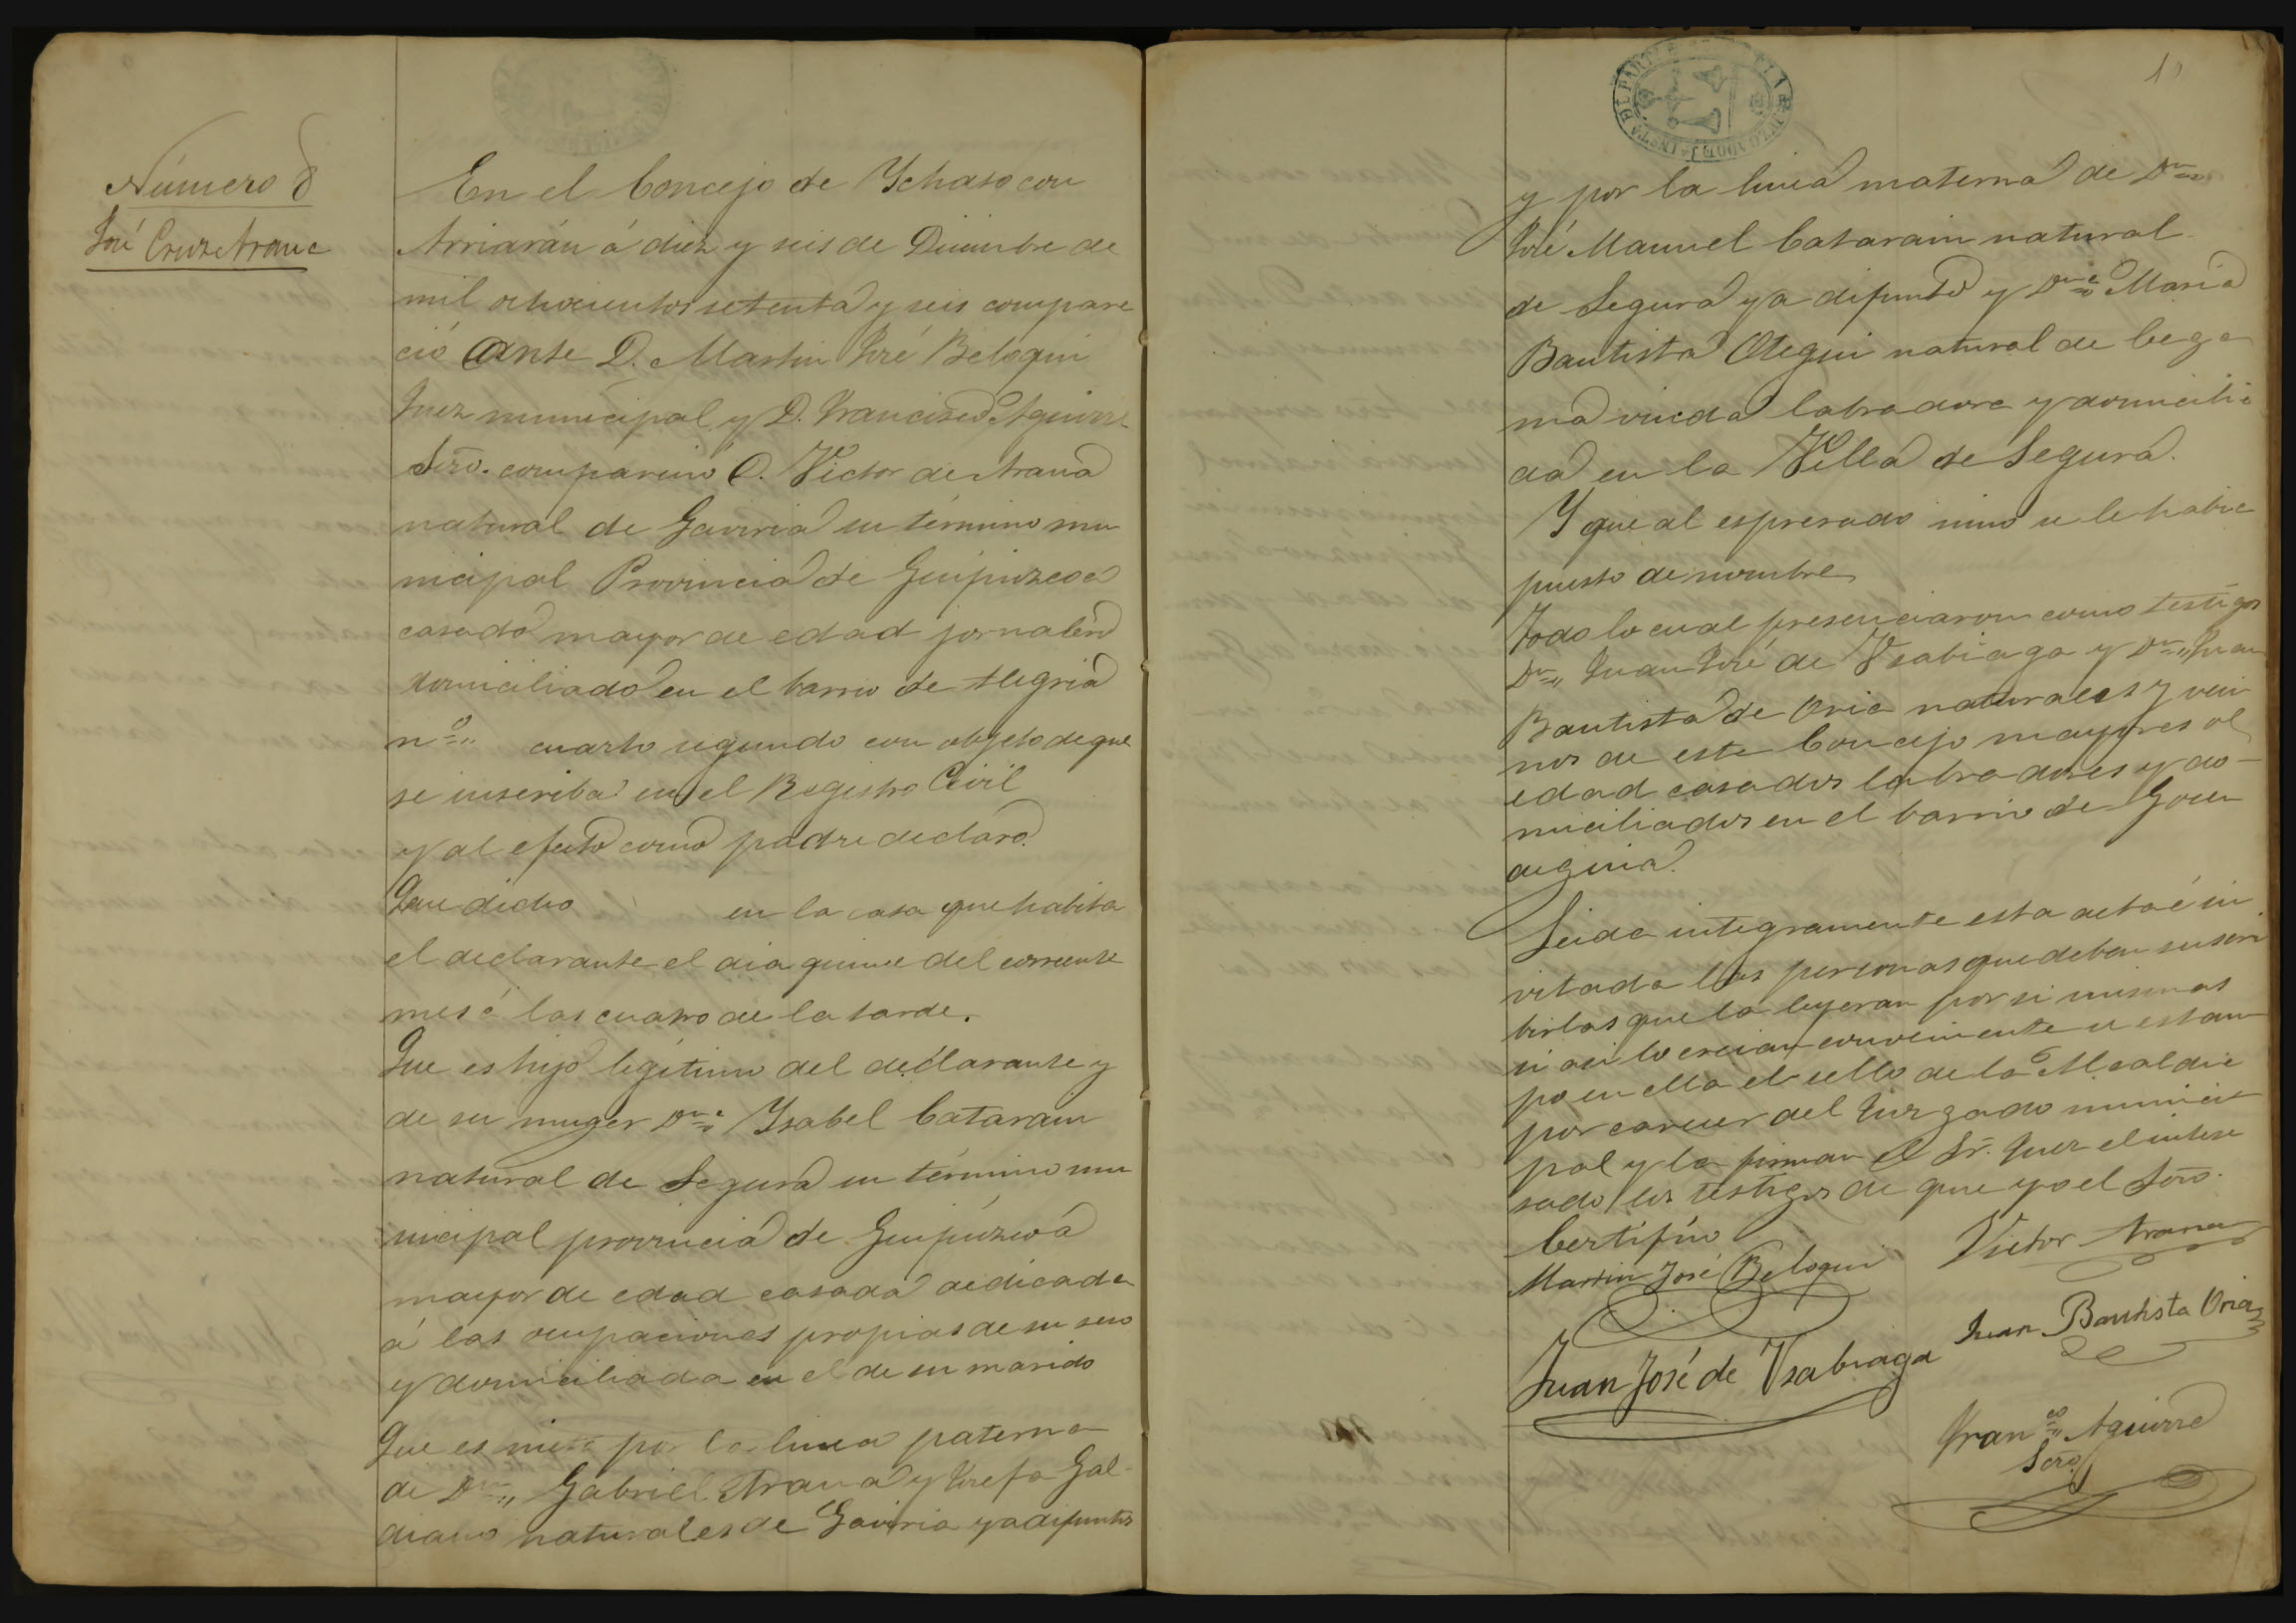 Número 8
José Cruz Arana
En el Concejo de Ychaso con
Arriarán á diez y seis de Diciembre de
mil ochocientos setenta y seis compare
ció Ante D. Martin José Beloqui
Juez municipal y D. Francisco Aguirre
Srio. comparecio D. Victor de Arana
natural de Gaviria su término mu
nicipal Provincia de Guipúzcoa
casado mayor de edad jornalero
domiciliado en el barrio de Alegria
nº cuarto segundo con objeto de que
se inscriba en el Registro Civil
y al efecto como padre declaró.
Que dicho en la casa que habita
el declarante el dia quince del corriente
mes á las cuatro de la tarde.
Que es hijo legítimo del declarante y
de su muger Dña Ysabel Catarain
natural de Segura su término mu
nicipal provincia de Guipúzcoa
mayor de edad casada dedicada
á las ocupaciones propias de su sexo
y domiciliada en el de su marido
Que es nieto por la linea paterna
de Dn Gabriel Arana y Josefa Gal
diano naturales de Gaviria ya difuntos
10
y por la linea materna de Dn
José Manuel Catarain natural
de Segura ya difunto y Dña Maria
Bautista Otegui natural de Cega
ma viuda labradora y domicilia
da en la Villa de Segura.
Y que al espresado nino se le habia
puesto de nombre
Todo lo cual presenciaron como testigos
Dn Juan José de Ysabiaga y Dn Juan
Bautista de Oria naturales y veci
nos de este Concejo mayores de
edad casados labradores y do-
miciliados en el barrio de
Leida integramente esta acta é in
vitada las personas que deben suscri
birlas que la leyeran por si mismas
si asi lo creian conveniente se estam
po en ella el sello de la Alcaldia
por carecer del Juzgado munici
pal y la firman el Sr. Juez el intere
sado los testigos de que yo el Srio.
Certifico
Martin José Beloqui Victor Arana
Juan José de Ysabiaga Juan Bautista Oria
Franco Aguirre
Srio